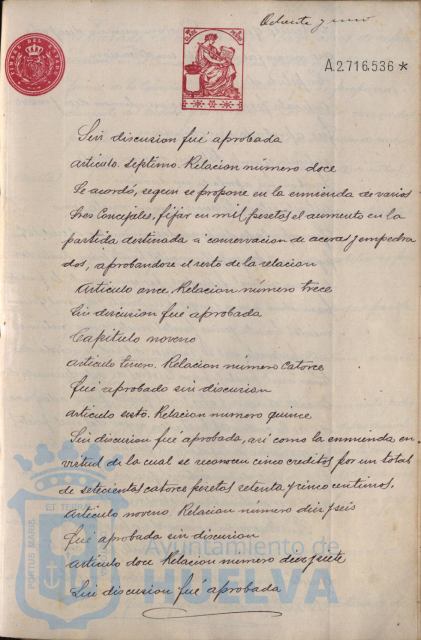 Ochenta y uno
A.2.716.536 *
Sin discusion fué aprobada
Articulo septimo. Relacion número doce
Se acordó, segun se propone en la enmienda de varios
Sres Concejales, fijar en mil pesetas el aumento en la
partida destinada á conservacion de aceras y empedra
dos, aprobandose el resto de la relacion
Articulo once Relacion número trece
Sin discusion fué aprobada
Capitulo noveno
Articulo tercero. Relacion número catorce
fué aprobada sin discusion
Articulo sesto. Relacion numero quince
Sin discusion fué aprobada, asi como la enmienda en
virtud de la cual se reconocen cinco creditos por un total
de setecientas catorce pesetas setenta y cinco centimos.
Articulo noveno. Relacion numero diez y seis
fué aprobada sin discusion
Articulo doce Relacion numero diez y siete
Sin discusion fué aprobada
PORTUS MARIS
ET TERRAE
Ayuntamiento de
HUELVA